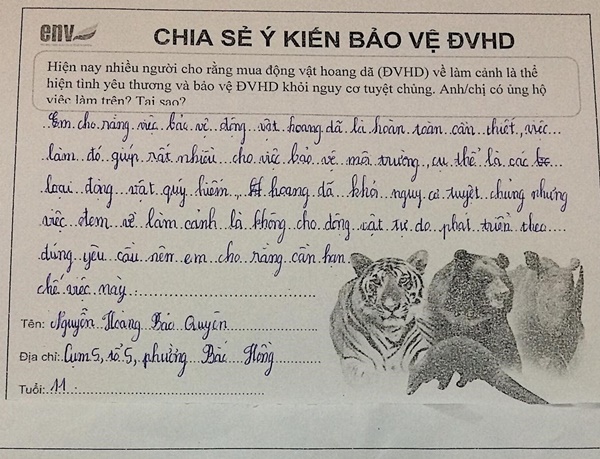 env
CHIA SẺ Ý KIẾN BẢO VỆ ĐVHD
Hiện nay nhiều người cho rằng mua động vật hoang dã (ĐVHD) về làm cảnh là thể
hiện tình yêu thương và bảo vệ ĐVHD khỏi nguy cơ tuyệt chủng. Anh/chị có ủng hộ
việc làm trên? Tại sao?
Em cho rằng việc bảo vệ động vật hoang dã là hoàn toàn cần thiết, việc
làm đó giúp rất nhiều cho việc bảo vệ môi trường, cụ thể là các
loại động vật quý hiếm, hoang dã khỏi nguy cơ tuyệt chủng nhưng
việc đem về làm cảnh là không cho động vật tự do phát triển theo
đúng yêu cầu nên em cho rằng cần hạn
chế việc này
Tên: Nguyễn Hoang Bảo Quyên
Địa chỉ: Cụm 5, tổ 5, phường Bắc Hồng
Tuổi: 11